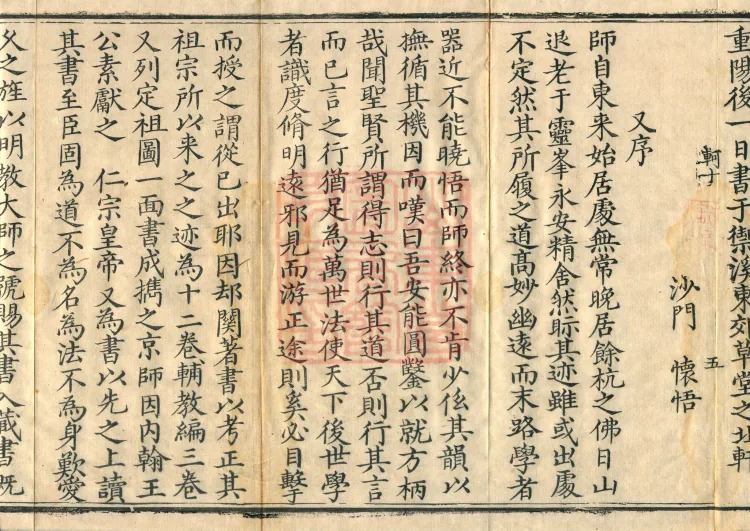 重陽後一日書于禦溪東郊草堂之北軒
沙門 懷悟
軻十 五
又序
師自東来始居處無常晚居餘杭之佛日山
退老于靈峯永安精舍然眎其迹雖或出處
不定然其所履之道高妙幽遠而末路學者
器近不能曉悟而師終亦不肯少低其韻以
撫循其機因而嘆曰吾安能圓鑿以就方枘
哉聞聖賢所謂得志則行其道否則行其言
而已言之行猶足為萬世法使天下後世學
者識度脩明遠邪見而游正途則奚必目擊
而授之謂從已出耶因却關著書以考正其
祖宗所以来之之迹為十二卷輔教編三卷
又列定祖圖一面書成攜之京師因内翰王
公素獻之 仁宗皇帝又為書以先之上讀
其書至臣固為道不為名為法不為身歎愛
久之旌以明教大師之號賜其書入藏書既